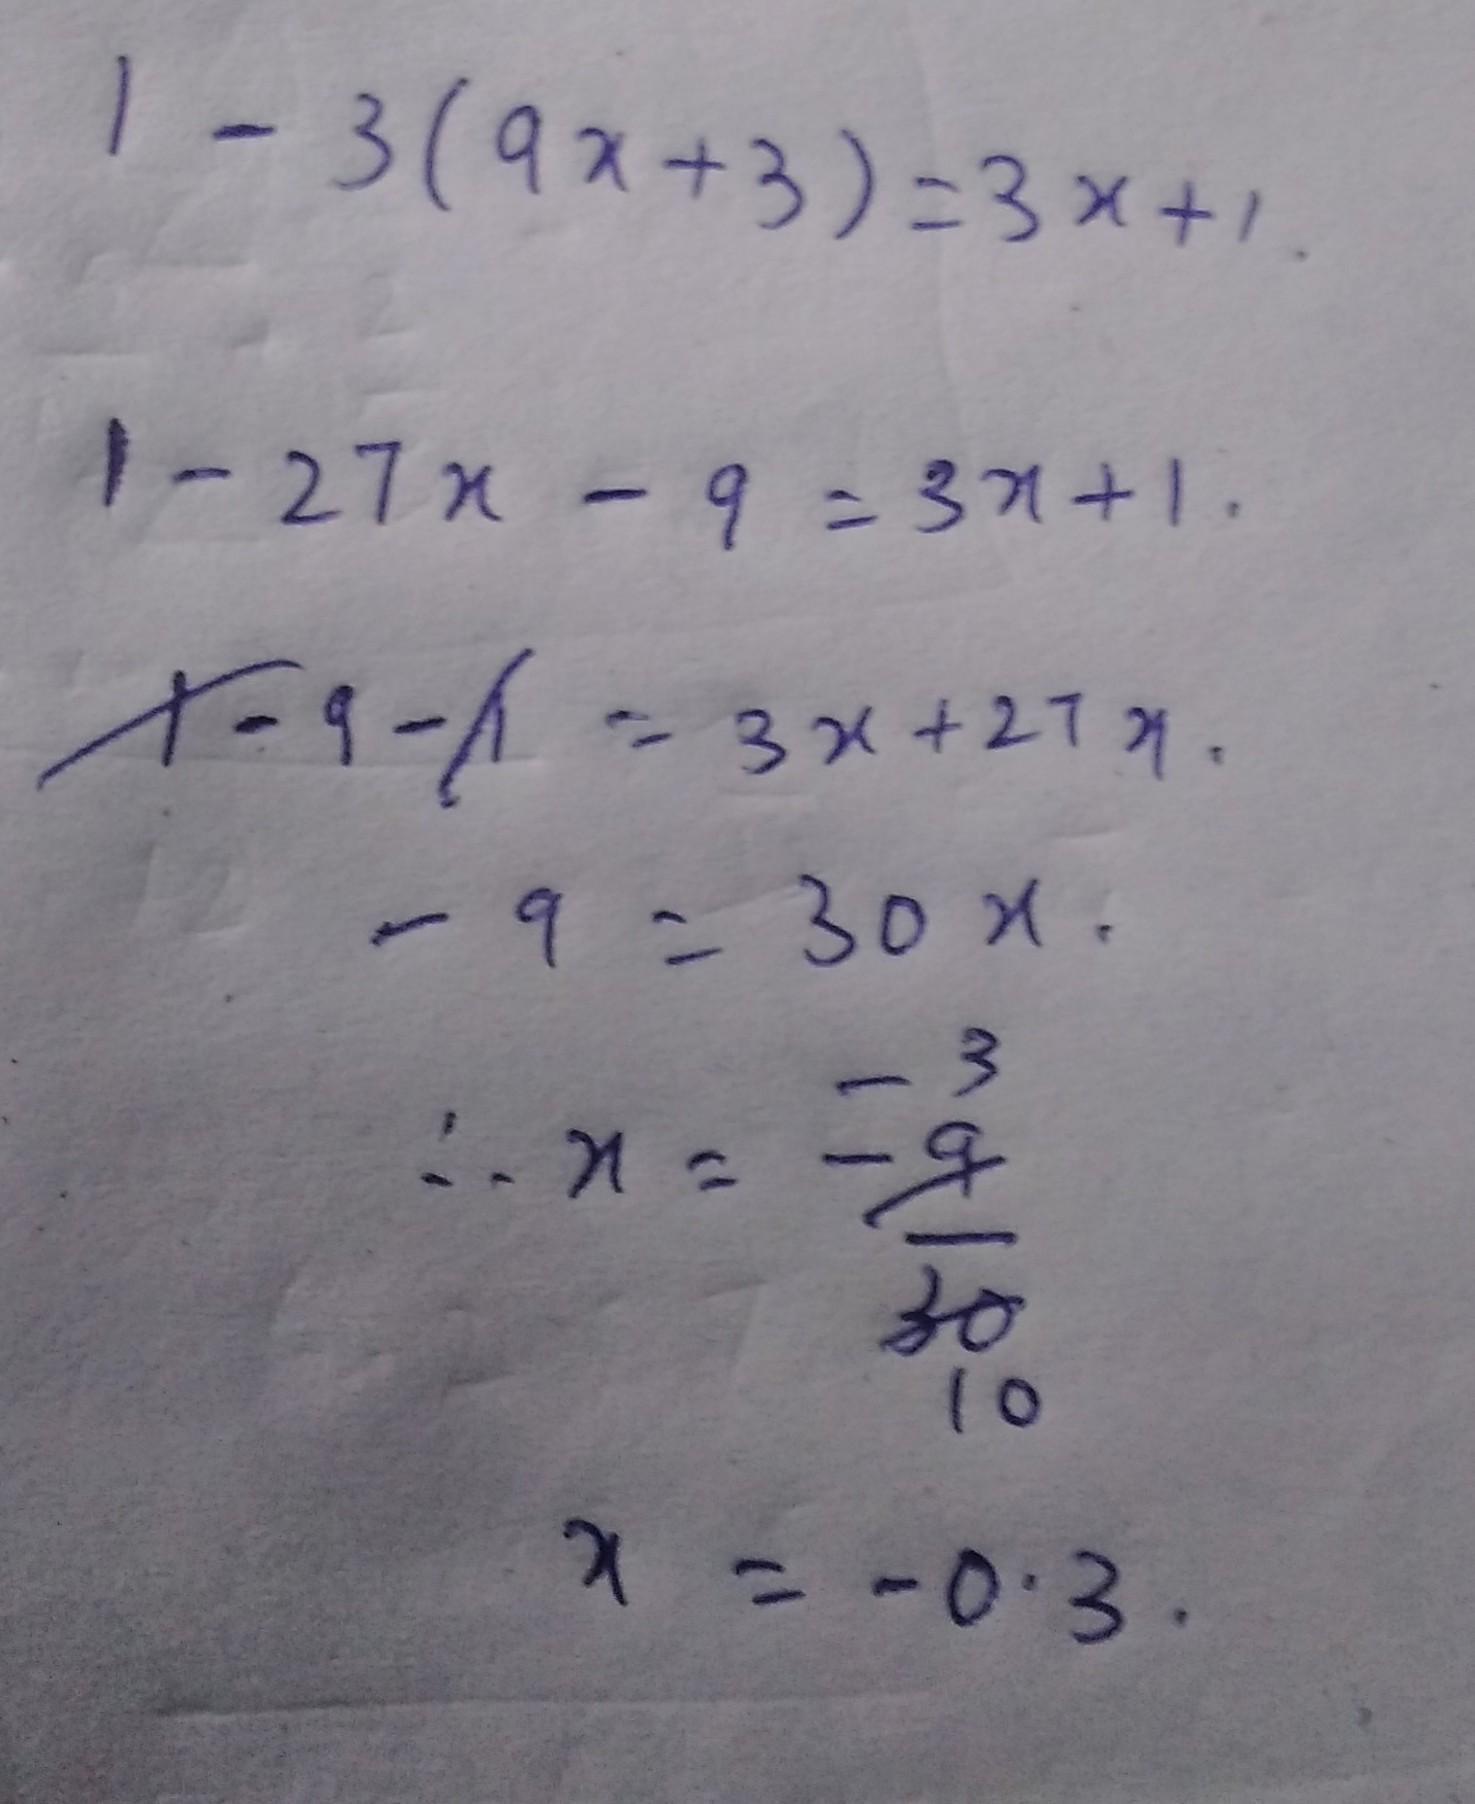 1 - 3(9x+3)=3x+1.
1 - 27x - 9 = 3x+1.
1 - 9 - 1 = 3x+27x.
- 9 = 30x.
- 3
∴ x = - 9
30
10
x = -0.3.